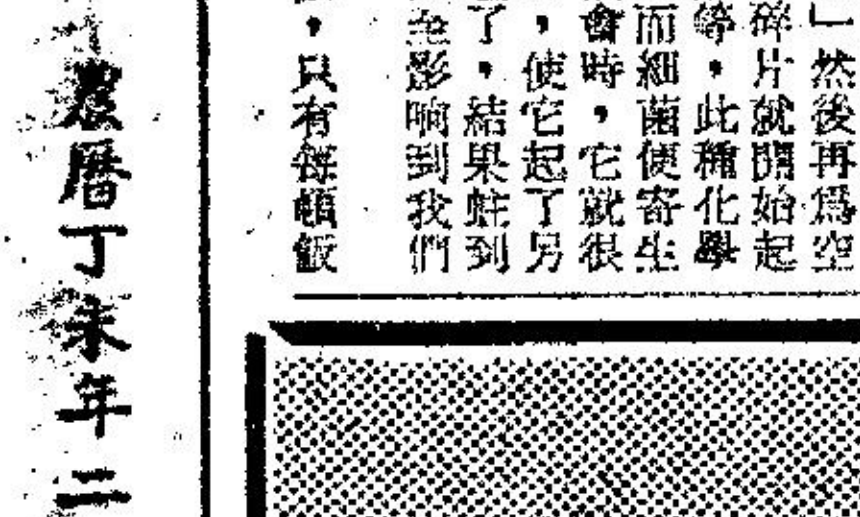 」然後再爲空
碎片就開始起
等，此種化學
而細菌便寄生
會時，它就很
，使它起了另
了，結果蛀到
至影响到我們
，只有每頓飯
農曆丁未年二